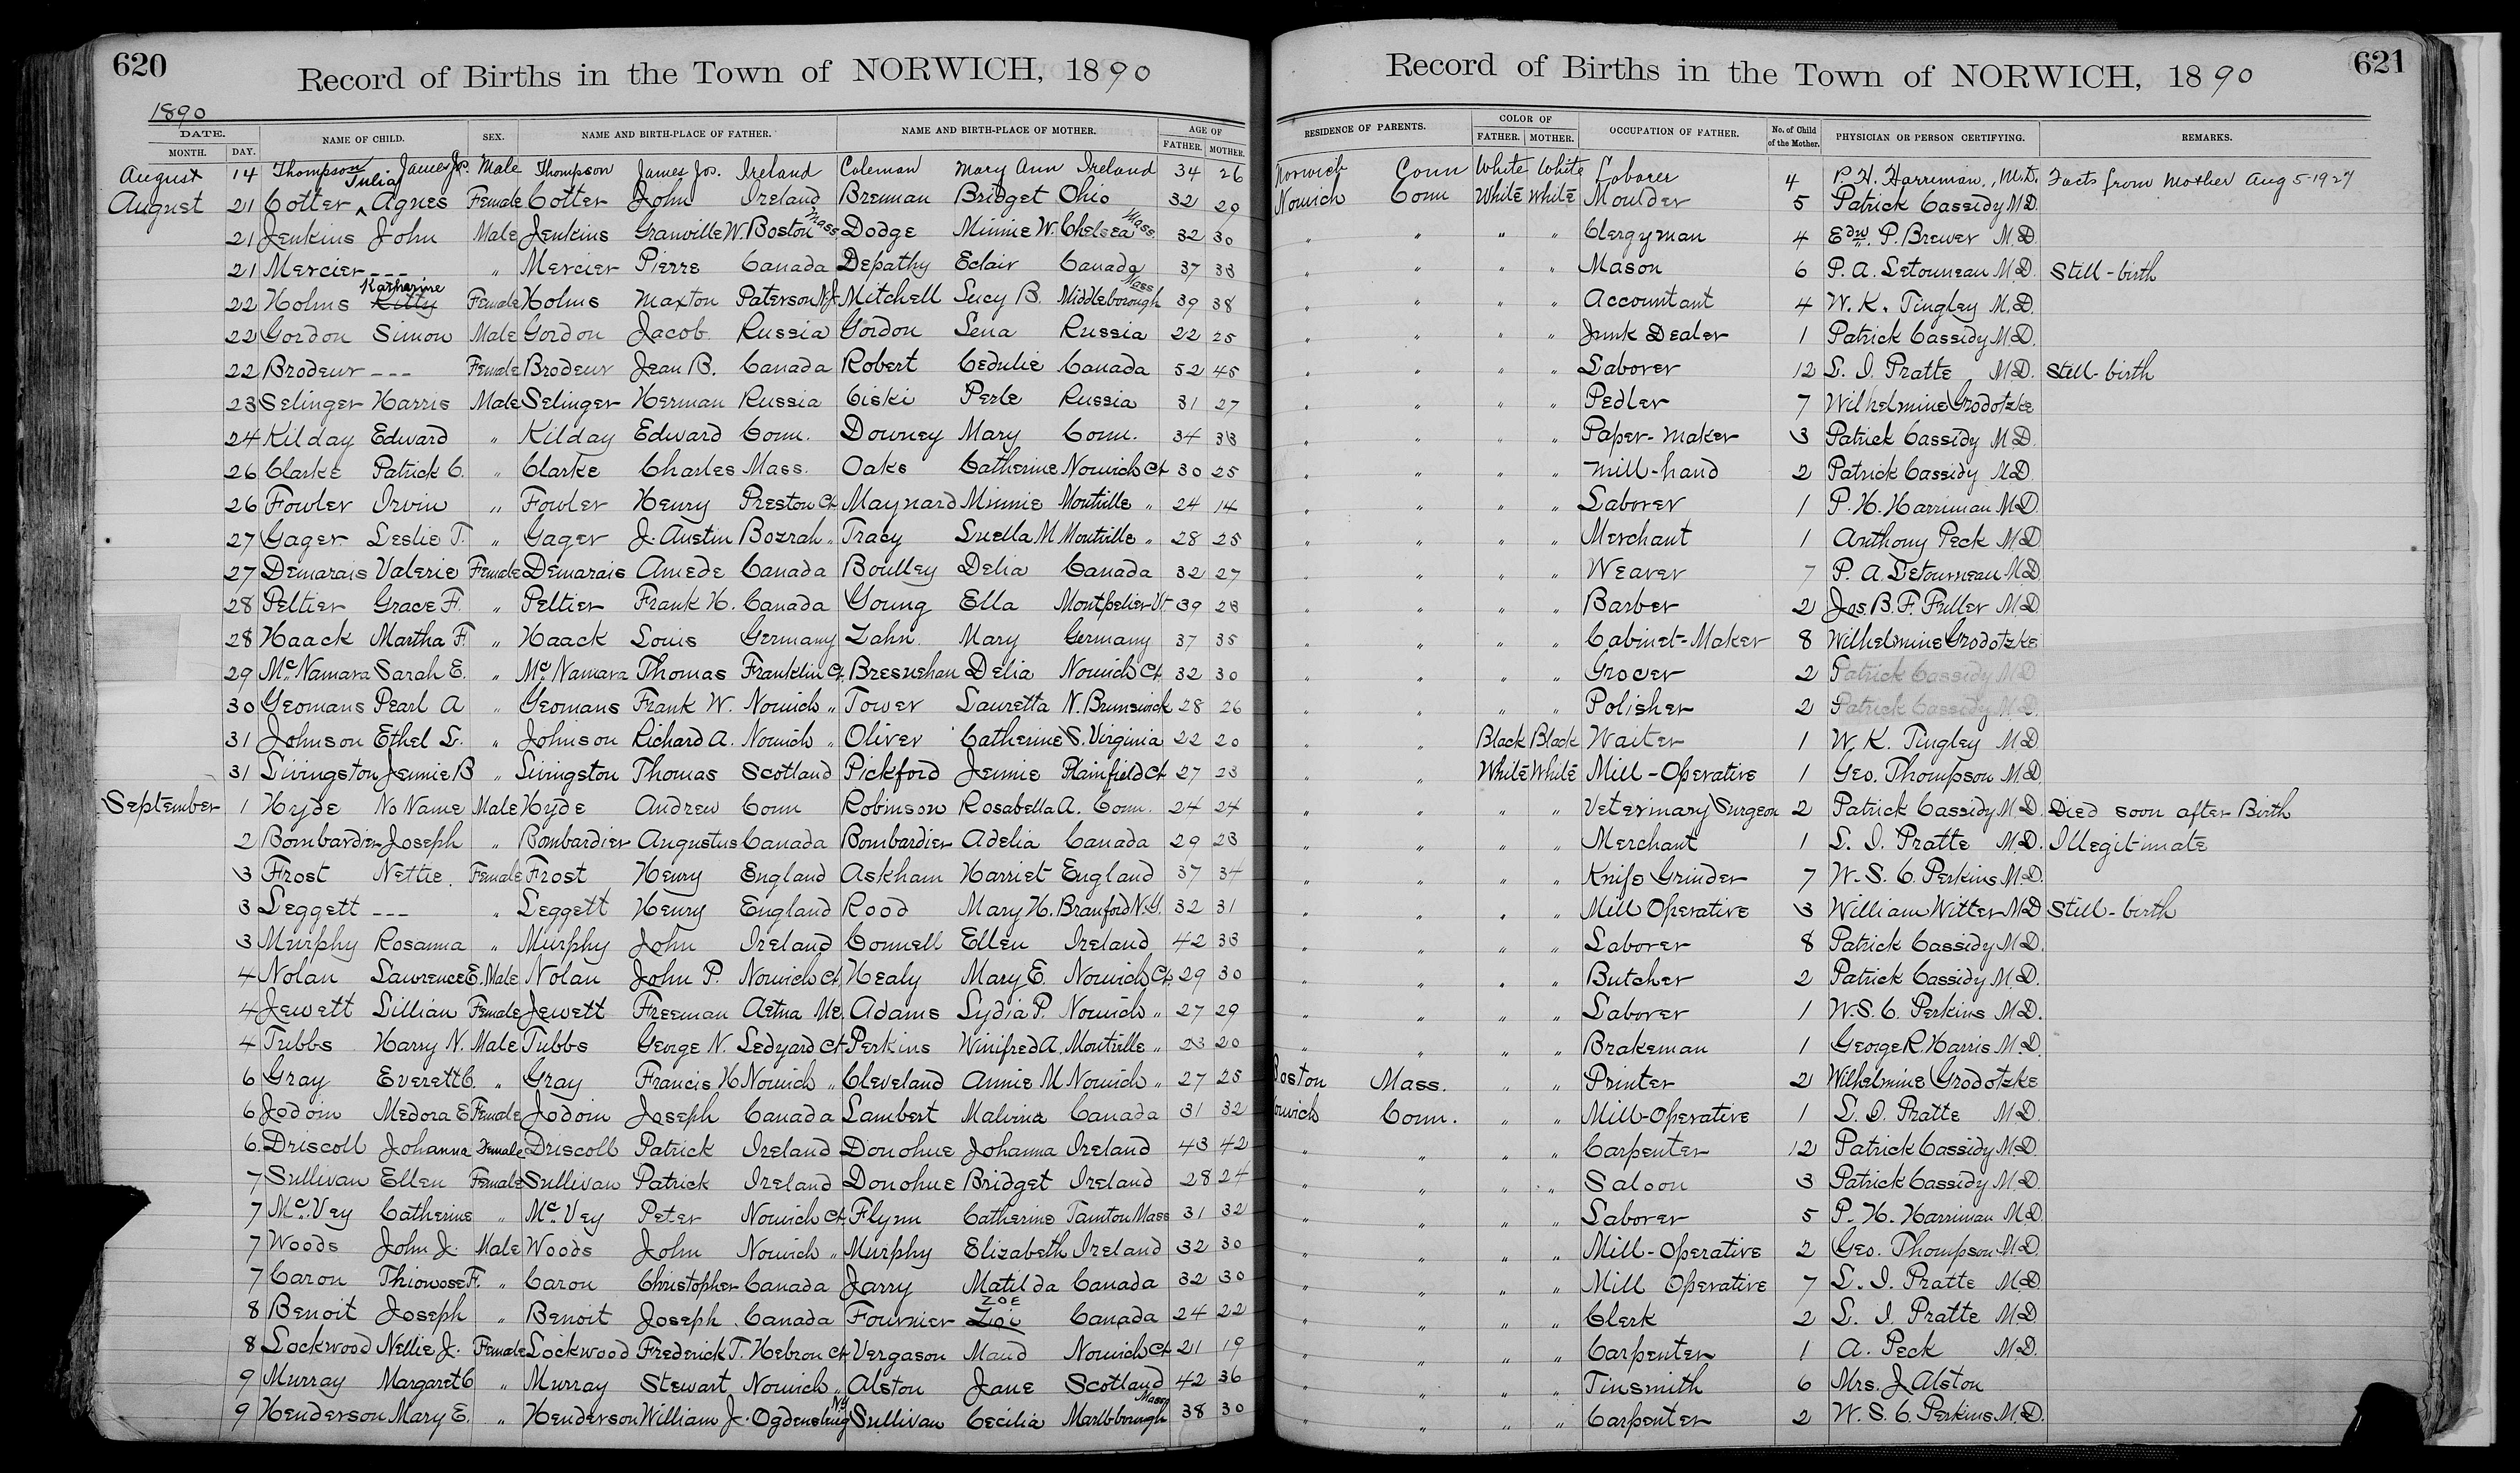 620
Record of Births in the Town of NORWICH, 1890
1890
DATE. NAME OF CHILD. SEX. NAME AND BIRTH-PLACE OF FATHER. NAME AND BIRTH-PLACE OF MOTHER. AGE OF
MONTH. DAY. FATHER. MOTHER.
August 14 Thompson James Jos. Male Thompson James Jos. Ireland Coleman Mary Ann Ireland 34 26
August 21 Cotter ^ Julia Agnes Female Cotter John Ireland Brennan Bridget Ohio 32 29
21 Jenkins John Male Jenkins Granville W. Boston Mass. Dodge Minnie W. Chelsea Mass. 32 30
21 Mercier --- " Mercier Pierre Canada Depathy Eclair Canada 37 33
22 Holms Katharine Kitty Female Holms Maxton Paterson N.J. Mitchell Lucy B. Middleborough Mass 39 38
22 Gordon Simon Male Gordon Jacob Russia Gordon Lena Russia 22 25
22 Brodeur --- Female Brodeur Jean B. Canada Robert Cedulie Canada 52 45
23 Selinger Harris Male Selinger Herman Russia Ciski Perle Russia 31 27
24 Kilday Edward " Kilday Edward Conn. Downey Mary Conn. 34 33
26 Clarke Patrick C. " Clarke Charles Mass. Oaks Catherine Norwich Ct. 30 25
26 Fowler Irvin " Fowler Henry Preston Ct. Maynard Minnie Montville " 24 14
27 Gager Leslie T. " Gager J. Austin Bozrah " Tracy Luella M Montville " 28 25
27 Demarais Valerie Female Demarais Amede Canada Boulley Delia Canada 32 27
28 Peltier Grace F. " Peltier Frank H. Canada Young Ella Montpelier Vt 39 28
28 Haack Martha F. " Haack Louis Germany Zahn Mary Germany 37 35
29 McNamara Sarah E. " McNamara Thomas Franklin Ct. Bresnehan Delia Norwich Ct. 32 30
30 Yeomans Pearl A " Yeomans Frank W. Norwich " Tower Lauretta N. Brunswick 28 26
31 Johnson Ethel L. " Johnson Richard A. Norwich " Oliver Catherine S. Virginia 22 20
31 Livingston Jennie B " Livingston Thomas Scotland Pickford Jennie Plainfield Ct 27 23
September 1 Hyde No Name Male Hyde Andrew Conn Robinson Rosabella A. Conn. 24 24
2 Bombardier Joseph " Bombardier Augustus Canada Bombardier Adelia Canada 29 23
3 Frost Nettie. Female Frost Henry England Askham Harriet England 37 34
3 Leggett --- " Leggett Henry England Rood Mary H. Branford N.Y. 32 31
3 Murphy Rosanna " Murphy John Ireland Connell Ellen Ireland 42 33
4 Nolan Lawrence E. Male Nolan John P. Norwich Ct. Healy Mary E. Norwich Ct. 29 30
4 Jewett Lillian Female Jewett Freeman Aetna Me. Adams Lydia P. Norwich " 27 29
4 Tubbs Harry N. Male Tubbs George N. Ledyard Ct. Perkins Winifred A. Montville " 23 20
6 Gray Everett C. " Gray Francis H Norwich " Cleveland Annie M Norwich " 27 25
6 Jodoin Medora E Female Jodoin Joseph Canada Lambert Malvina Canada 31 32
6 Driscoll Johanna Female Driscoll Patrick Ireland Donohue Johanna Ireland 43 42
7 Sullivan Ellen Female Sullivan Patrick Ireland Donohue Bridget Ireland 28 24
7 McVey Catherine " McVey Peter Norwich Ct. Flynn Catherine Taunton Mass 31 32
7 Woods John J. Male Woods John Norwich " Murphy Elizabeth Ireland 32 30
7 Caron F. " Caron Christopher Canada Jarry Matilda Canada 32 30
8 Benoit Joseph " Benoit Joseph Canada Fournier ZOE Canada 24 22
8 Lockwood Nellie J. Female Lockwood Frederick T. Hebron Ct. Vergason Maud Norwich Ct. 21 19
9 Murray Margaret C " Murray Stewart Norwich " Alston Jane Scotland 42 36
9 Henderson Mary E. " Henderson William J. Ogdensburg N.Y. Sullivan Cecilia Marlborough Mass 38 30
621
Record of Births in the Town of NORWICH, 1890
RESIDENCE OF PARENTS. COLOR OF OCCUPATION OF FATHER. No. of Child of the Mother. PHYSICIAN OR PERSON CERTIFYING. REMARKS.
FATHER. MOTHER.
Norwich Conn White White Laborer 4 P. H. Harriman, M.D. Facts from Mother Aug 5-1927
Norwich Conn White White Moulder 5 Patrick Cassidy M.D.
" " " " Clergyman 4 Edw. P. Brewer M.D.
" " " " Mason 6 P. A. Letourneau M.D. Still-birth
" " " " Accountant 4 W. K. Tingley M.D.
" " " " Junk Dealer 1 Patrick Cassidy M.D.
" " " " Laborer 12 L. I. Pratte M.D. Still-birth
" " " " Pedler 7 Wilhelmine Grodotzke
" " " " Paper-maker 3 Patrick Cassidy M.D.
" " " " Mill-hand 2 Patrick Cassidy M.D.
" " " " Laborer 1 P. H. Harriman M.D.
" " " " Merchant 1 Anthony Peck M.D.
" " " " Weaver 7 P. A. Letourneau M.D.
" " " " Barber 2 Jos. B. F. Fuller M.D.
" " " " Cabinet-Maker 8 Wilhelmine Grodotzke
" " " " Grocer 2 Patrick Cassidy M.D.
" " " " Polisher 2 Patrick Cassidy M.D.
" " Black Black Waiter 1 W. K. Tingley M.D.
" " White White Mill-Operative 1 Geo. Thompson M.D.
" " " " Veterinary Surgeon 2 Patrick Cassidy M.D. Died soon after Birth
" " " " Merchant 1 L. I. Pratte M.D. Illegitimate
" " " " Knife Grinder 7 W. S. C. Perkins M.D.
" " " " Mill Operative 3 William Witter M.D. Still-birth
" " " " Laborer 8 Patrick Cassidy M.D.
" " " " Butcher 2 Patrick Cassidy M.D.
" " " " Laborer 1 W. S. C. Perkins M.D.
" " " " Brakeman 1 George R. Harris M.D.
Boston Mass. " " Printer 2 Wilhelmine Grodotzke
Norwich Conn. " " Mill-Operative 1 L. I. Pratte M.D.
" " " " Carpenter 12 Patrick Cassidy M.D.
" " " " Saloon 3 Patrick Cassidy M.D.
" " " " Laborer 5 P. H. Harriman M.D.
" " " " Mill-Operative 2 Geo. Thompson M.D.
" " " " Mill Operative 7 L. I. Pratte M.D.
" " " " Clerk 2 L. I. Pratte M.D.
" " " " Carpenter 1 A. Peck M.D.
" " " " Tinsmith 6 Mrs. J Alston
" " " " Carpenter 2 W. S. C. Perkins M.D.